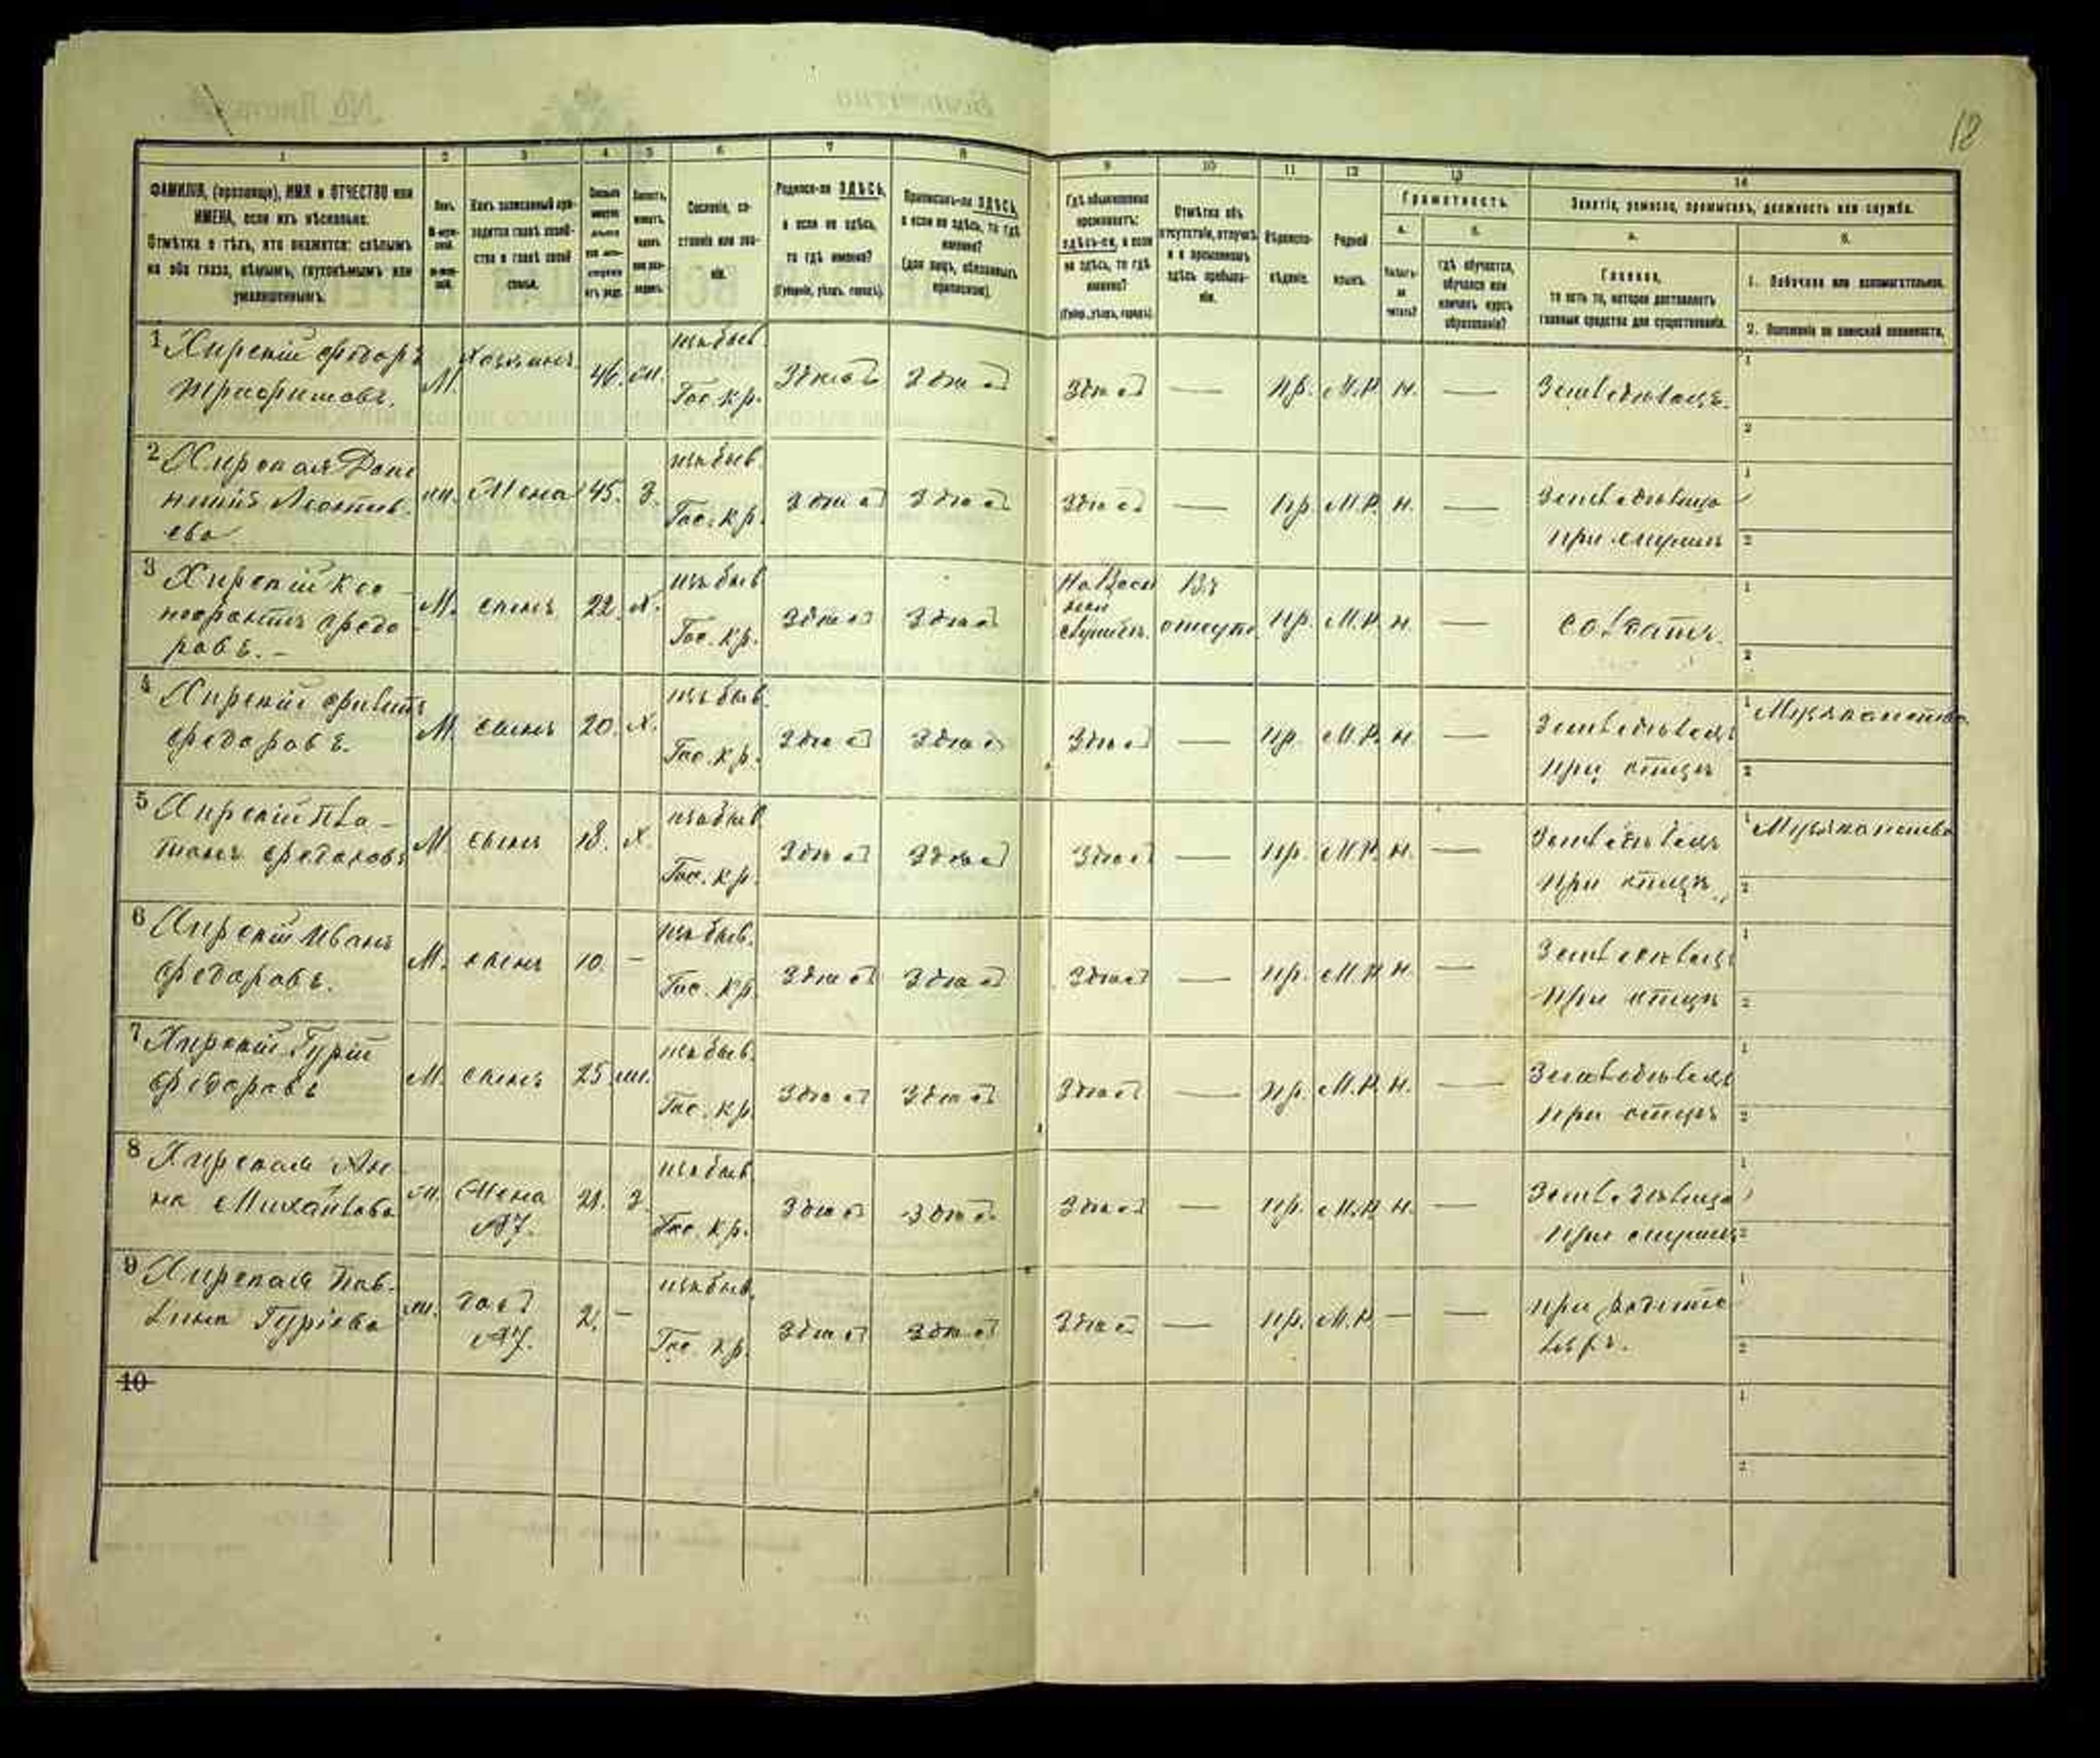 12
1 2 3 4 5 6 7 8 9 10 11 12 13 14
ФАМИЛІЯ, (прозвище), ИМЯ и ОТЧЕСТВО или
ИМЕНА, если ихъ нѣсколько.
Отмѣтка о тѣхъ, кто окажется: слѣпымъ
на оба глаза, нѣмымъ, глухонѣмымъ или
умалишеннымъ.
Какъ записанный при-
ходится главѣ хозяй-
ства и главѣ своей
семьи.
Сословіе, со-
стояніе или зва-
ніе.
Родился-ли ЗДѢСЬ,
а если не здѣсь,
то гдѣ именно?
(Губернія, уѣздъ, городъ).
Приписанъ-ли ЗДѢСЬ,
а если не здѣсь, то гдѣ
именно?
(для лицъ, обязанныхъ
припискою).
Гдѣ обыкновенно
проживаетъ:
здѣсь-ли, а если
не здѣсь, то гдѣ
именно?
(Губер., уѣздъ, городъ).
Отмѣтка объ
отсутствіи, отлучкѣ
и о временномъ
здѣсь пребыва-
ніи.
Вѣроиспо-
вѣданіе.
Родной
языкъ.
Грамотность.
а.
Умѣетъ-
ли
читать?
б.
гдѣ обучается,
обучался или
кончилъ курсъ
образованія?
Занятіе, ремесло, промыселъ, должность или служба.
а.
Главное,
то есть то, которое доставляетъ
главныя средства для существованія.
б.
1. Побочное или вспомогательное.
2. Положеніе по воинской повинности.
1 Хирскій Федоръ
Трифоновъ.
М. Хозяинъ 46. ж. изъ быв.
Гос. кр. Здѣсь Здѣсь Здѣсь — пр. М.Р. н. — Земледѣлецъ.
2 Хирская
Леонтьева
ж. Жена 45. З. изъ быв.
Гос. кр. Здѣсь Здѣсь Здѣсь — пр. М.Р. н. — Земледѣлица
при мужѣ
3 Хирскій Ксе-
нофонтъ Федо-
ровъ. —
М. сынъ 22. Х. изъ быв.
Гос. кр. Здѣсь Здѣсь На Воен
ной
службѣ. Въ
отпуск. пр. М.Р. н. — солдатъ.
4 Хирскій Филипъ
Федоровъ.
М. сынъ 20. Х. изъ быв.
Гос. кр. Здѣсь Здѣсь Здѣсь — пр. М.Р. н. — Земледѣлецъ
при отцѣ
5 Хирскій Пла-
тонъ Федоровъ
М. сынъ 18. Х. изъ быв.
Гос. кр. Здѣсь Здѣсь Здѣсь — пр. М.Р. н. — Земледѣлецъ
при отцѣ
6 Хирскій Иванъ
Федоровъ.
М. сынъ 10. — изъ быв.
Гос. кр. Здѣсь Здѣсь Здѣсь — пр. М.Р. н. — Земледѣлецъ
при отцѣ
7 Хирскій Гурій
Федоровъ
М. сынъ 25 ж. изъ быв.
Гос. кр. Здѣсь Здѣсь Здѣсь — пр. М.Р. н. — Земледѣлецъ
при отцѣ
8 Хирская Ан-
на Михайлова
ж. Жена
№7. 21. З. изъ быв.
Гос. кр. Здѣсь Здѣсь Здѣсь — пр. М.Р. н. — Земледѣлица
при мужѣ
9 Хирская Пав-
лина Гуріева
ж. дочь
№7. 2. — изъ быв.
Гос. кр. Здѣсь Здѣсь Здѣсь — пр. М.Р. — — при родите-
ляхъ.
10